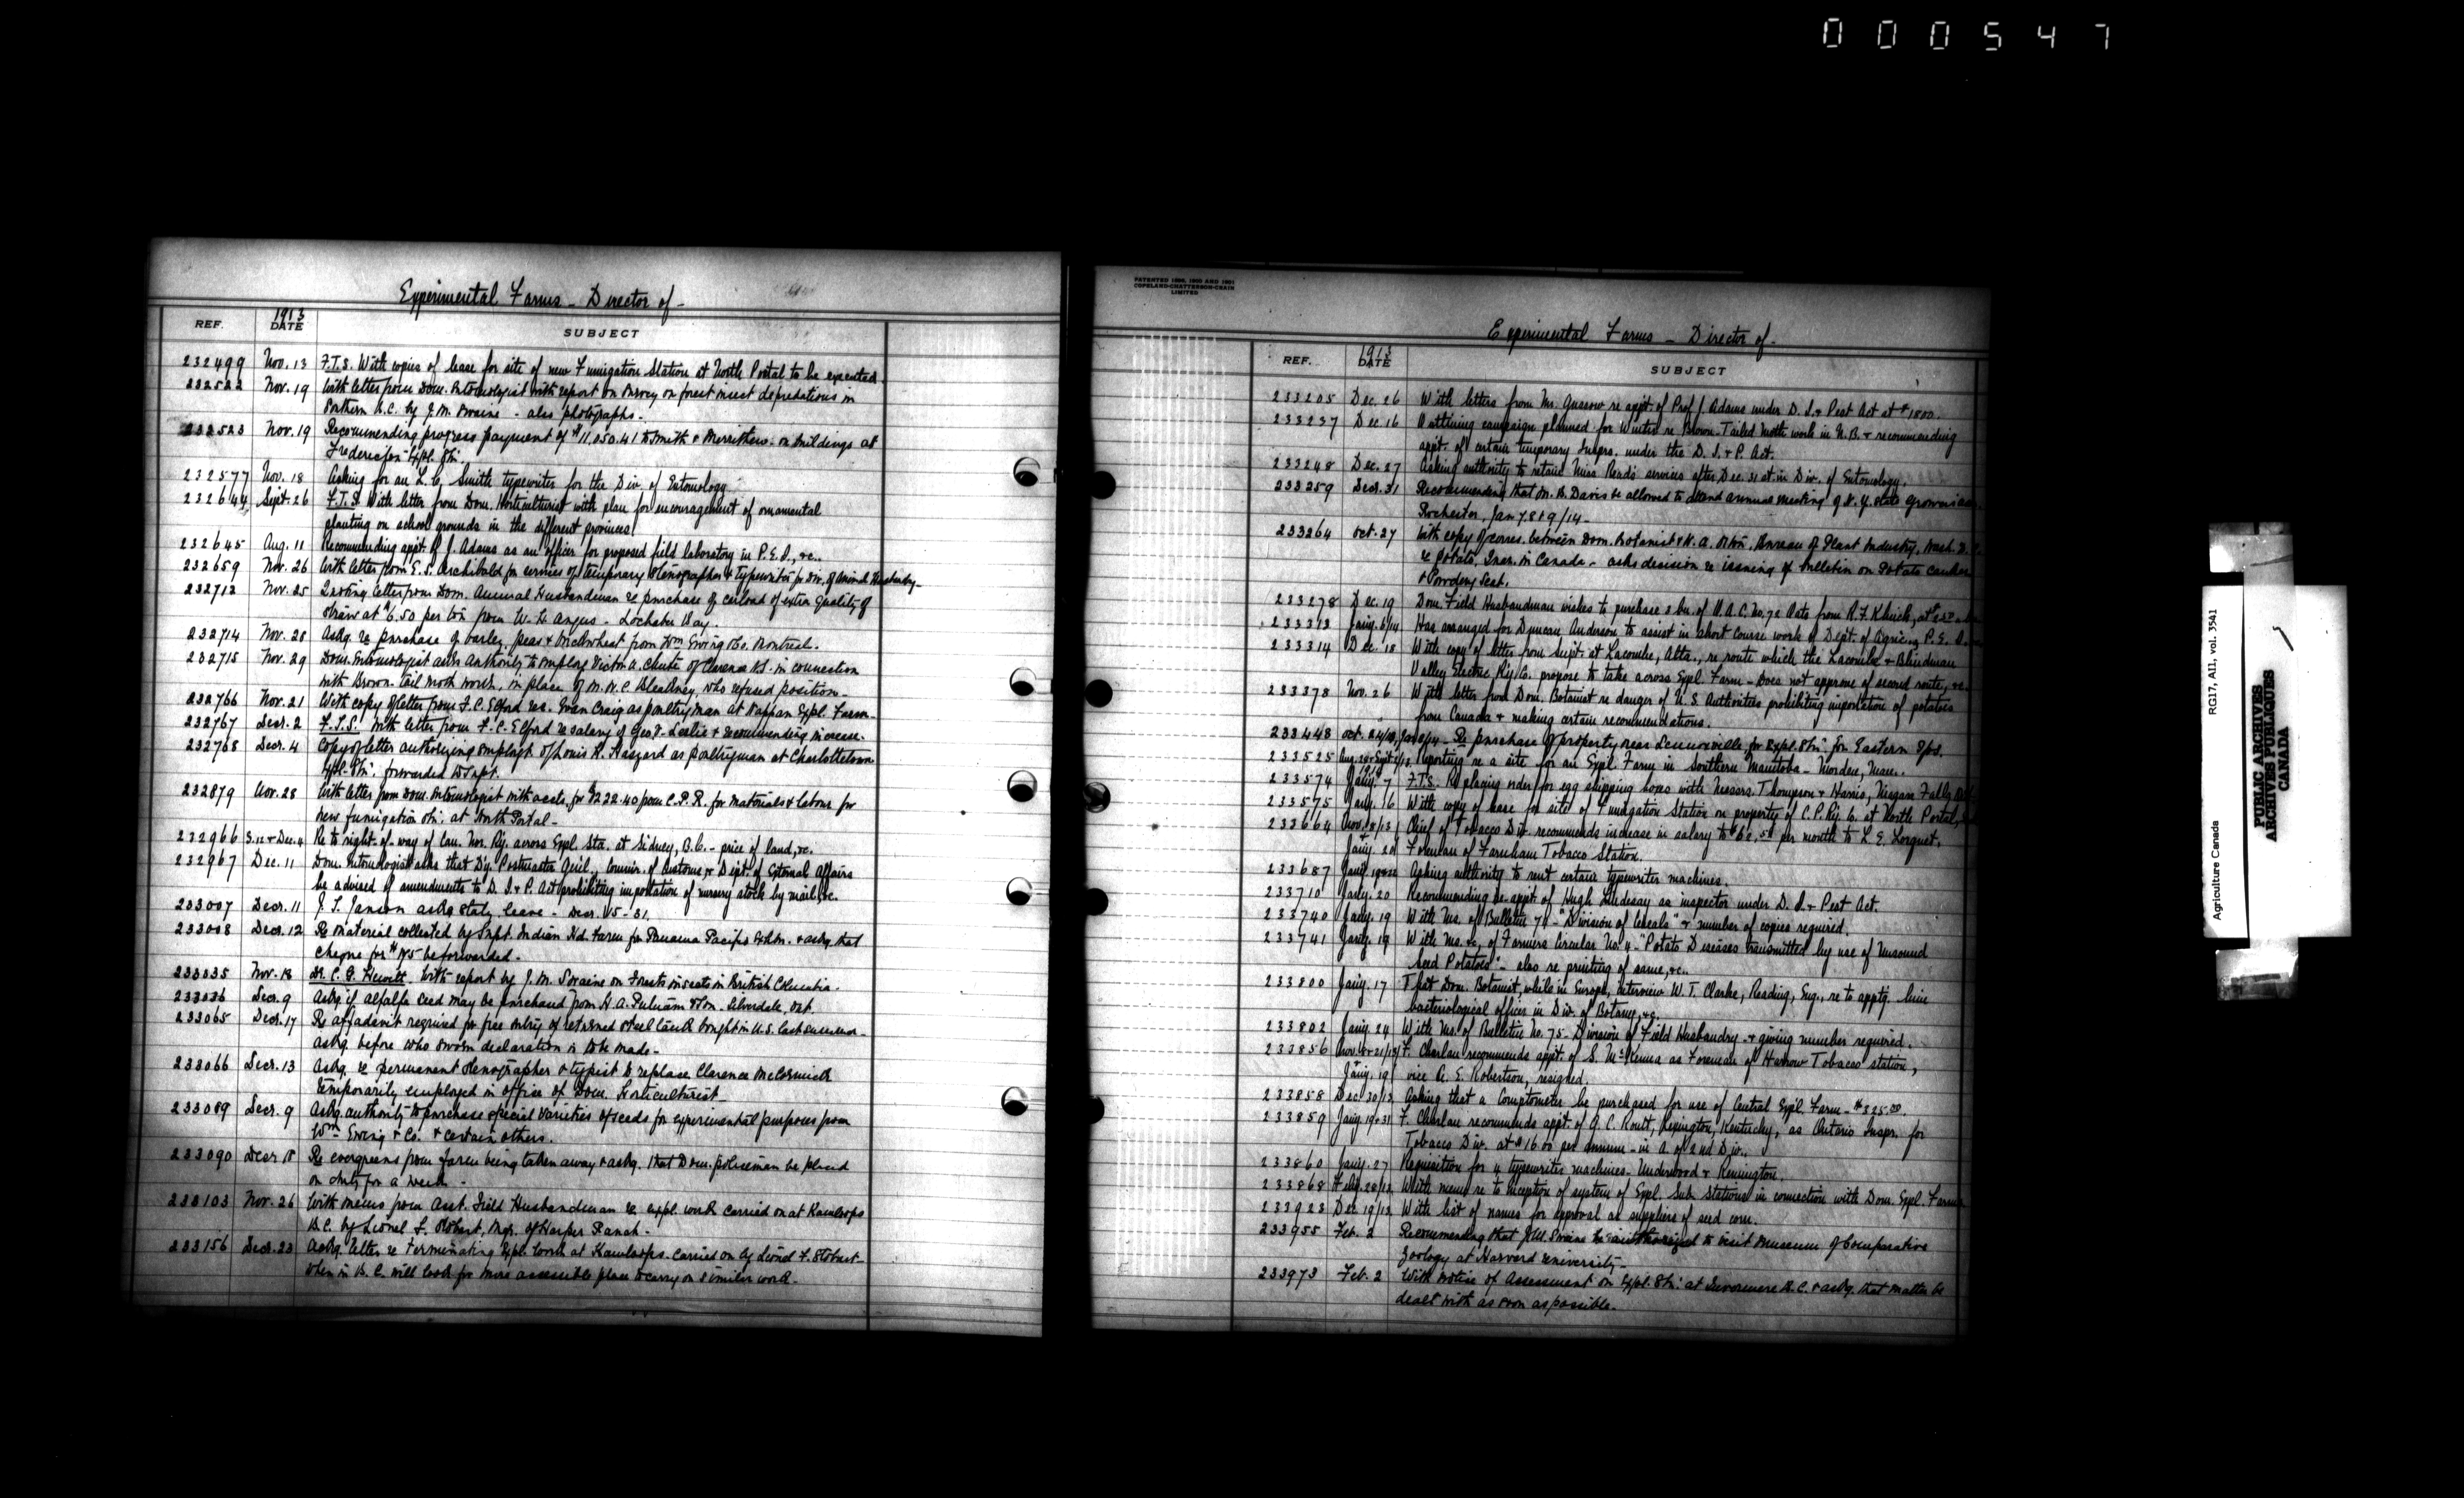 000547
Experimental Farms - Director of -
REF. 1913 DATE SUBJECT
232499 Nov. 13 F.T.S. With copies of lease for site of new Fumigation Station at North Portal to be executed.
232522 Nov. 19 With letter from Dom. Entomologist with report on Survey on forest insect depredations in
Southern B.C. by J.M. Swaine - also photographs -
232523 Nov. 19 Recommending progress payment of $11,050.41 to Smith & Merrithew on buildings at
Fredericton Exptl. Stn.
232577 Nov. 18 Asking for an L.C. Smith typewriter for the Div. of Entomology
232644 Sept. 26 F.T.S. With letter from Dom. Horticulturist with plan for encouragement of ornamental
planting on school grounds in the different provinces
232645 Aug. 11 Recommending appt. of J. Adams as an officer for proposed field laboratory in P.E.I., &c..
232659 Nov. 26 With letter from E.S. Archibald for services of temporary Stenographer & typewriter for Div. of Animal Husbandry -
232712 Nov. 25 letter from Dom. Animal Husbandman re purchase of carload of extra quality of
straw at $6.50 per ton from W.H. Angus - Lochaber Bay.
232714 Nov. 28 Askg. re purchase of barley, peas & buckwheat from Wm Ewing & Co. Montreal.
232715 Nov. 29 Dom. Entomologist asks authority to employ Victor A. Chute of Clarence N.S. in connection
with Brown-tail moth work, in place of M.W.C. Bleakney, who refused position -
232766 Nov. 21 With copy of letter from F.C. Elford re Evan Craig as poultryman at Nappan Exptl. Farm -
232767 Decr. 2 F.T.S. With letter from F.C. Elford re salary of Geo. F. Leslie & recommending increase.
232768 Decr. 4 Copy of letter authorizing employt. of Louis R. Haszard as poultryman at Charlottetown
Exptl. Stn. forwarded to Supt.
232879 Nov. 28 With letter from Dom. Entomologist with accts. for $222.40 from C.P.R. for materials & labour for
new fumigation stn. at North Portal -
232966 & Dec. 4 Re to right-of-way of Can. Nor. Ry. across Exptl. Sta. at Sidney, B.C. - price of land, &c.
232967 Dec. 11 Dom. Entomologist asks that Dy. Postmaster Genl., Commr. of Customs, & Dept. of External Affairs
be advised of amendments to D.I. & P. Act prohibiting importation of nursery stock by mail, &c.
233007 Decr. 11 J.T. Janson askg. leave - Decr. 15-31.
233008 Decr. 12 Re material collected by Supt. Indian Hd. Farm for Panama Pacific Exhbn. & askg. that
cheque for $175 be forwarded -
233035 Nov. 18 Dr. C.G. Hewitt. With report by J.M. Swaine on Forest insects in British Columbia -
233036 Decr. 9 Askg if alfalfa seed may be purchased from H.A. & Son. Silverdale, Ont.
233065 Decr. 17 Re affadavit required for free entry of returned steel tank bought in U.S. last summer -
askg. before who sworn declaration is to be made -
233066 Decr. 13 Askg. re permanent stenographer & typist to replace Clarence McCormick
temporarily employed in office of Dom. Horticulturist -
233089 Decr. 9 Askg. authority to purchase special varieties of seeds for experimental purposes from
Wm Ewing & Co. & certain others.
233090 Decr 18 Re evergreens from farm being taken away & askg. that Dom. policeman be placed
on duty for a week -
233103 Nov. 26 With memo from Asst. Field Husbandman re exptl. work carried on at Kamloops
B.C. by Lionel F. Stobart, Mgr. of Harper Ranch -
233156 Decr. 23 Askg. letter re terminating Exptl. work at Kamloops carried on by Lionel F. Stobart -
when in B.C. will look for more accessible place to carry on similar work -
PATENTED 1896, 1900 AND 1901
COPELAND-CHATTERSON-CRAIN
LIMITED
Experimental Farms - Director of -
REF. 1913 DATE SUBJECT
233205 Dec. 26 With letters from Mr. Gussow re appt. of Prof J. Adams under D.I. & Pest Act at $1800.
233237 Dec 16 Outlining campaign planned for Winter re Brown-Tailed Moth work in N.B. & recommending
appt. of certain temporary Insprs. under the D.I. & P. Act.
233248 Dec. 27 Asking authority to retain Miss services after Dec. 31st in Div. of Entomology.
233259 Decr. 31 Recommending that M.B. Davis be allowed to attend annual meeting of N.Y. State Growers
Rochester, Jan 7, 8 & 9/14 -
233264 Oct. 27 With copy of corres. between Dom. Botanist & W.A. Orton, Bureau of Plant Industry, Wash. D.C.
re Potato Insp. in Canada - asks decision re issuing of bulletin on Potato Canker
& Powdery Scab.
233278 Dec. 19 Dom. Field Husbandman wishes to purchase 2 bu. of O.A.C. No. 72 Oats from R.F. Klinck, at
233313 Jany. 6/14 Has arranged for Duncan Anderson to assist in short course work of Dept. of Agric. P.E.I.
233314 Dec. 18 With copy of letter from Supt. at Lacombe, Alta., re route which the Lacombe & Blindman
Valley Electric Ry. Co. propose to take across Exptl. Farm - Does not approve of second route, &c.
233378 Nov. 26 With letter from Dom. Botanist re danger of U.S. Authorities prohibiting importation of potatoes
from Canada & making certain recommendations.
233448 Oct. Re purchase of property near Lennoxville, for Exptl. Stn. for Eastern Tps.
233525 Reporting re a site for an Exptl. Farm in Southern Manitoba - Morden, Man..
233574 1914 Jany. 7 F.T.S. Re placing order for egg shipping boxes with Messrs. Thompson & Harris, Niagara Falls
233575 Jany. 16 With copy of lease for site of Fumigation Station on property of C.P. Ry. Co. at North Portal,
233664 Nov. 8/13 Chief of Tobacco Div. recommends increase in salary to $62.50 per month to L.E. Lorquet,
& Jany. 20 Foreman of Farnham Tobacco Station.
233687 Jany. 19 & 22 Asking authority to rent certain typewriter machines.
233710 Jany. 20 Recommending re-appt. of Hugh Lindesay as inspector under D.I. & Pest Act.
233740 Jany. 19 With Ms. of Bulletin 74 - "Division of Cereals" & number of copies required.
233741 Jany. 19 With Ms. &c, of Farmers Circular No. 4 - "Potato Diseases transmitted by use of Unsound
Seed Potatoes" - also re printing of same, &c..
233800 Jany. 17 That Dom. Botanist, while in Europe, interview W.T. Clarke, Reading, Eng., re to apptg. him
bacteriological officer in Div. of Botany, &c.
233802 Jany. 24 With Ms. of Bulletin No. 75 - Division of Field Husbandry & giving number required.
233856 F. Charlan recommends appt. of S. McKenna as Foreman of Harrow Tobacco station,
Jany. 19 vice A.E. Robertson, resigned.
233858 Dec. 30/13 Asking that a Comptometer be purchased for use of Central Exptl. Farm - $325.00.
233859 Jany. 19 & 31 F. Charlan recommends appt. of G.C. Routt, Lexington, Kentucky, as Ontario Inspr. for
Tobacco Div. at $1600 per annum - in A of 2nd Div..
233860 Jany. 27 Requisition for 4 typewriter machines - Underwood & Remington.
233868 Feby. 28/12 With memo re to inception of system of Exptl. Sub Stations in connection with Dom. Exptl. Farms
233923 Dec 19/13 With list of names for approval as suppliers of seed corn.
233955 Feb. 2 Recommending that J.M. Swaine be authorized to visit Museum of Comparative
Zoology at Harvard University -
233973 Feb. 2 With notice of Assessment on Exptl. Stn. at Invermere B.C. & askg. that matter be
dealt with as soon as possible.
Agriculture Canada RG17, AII, vol. 3541
PUBLIC ARCHIVES
ARCHIVES PUBLIQUES
CANADA